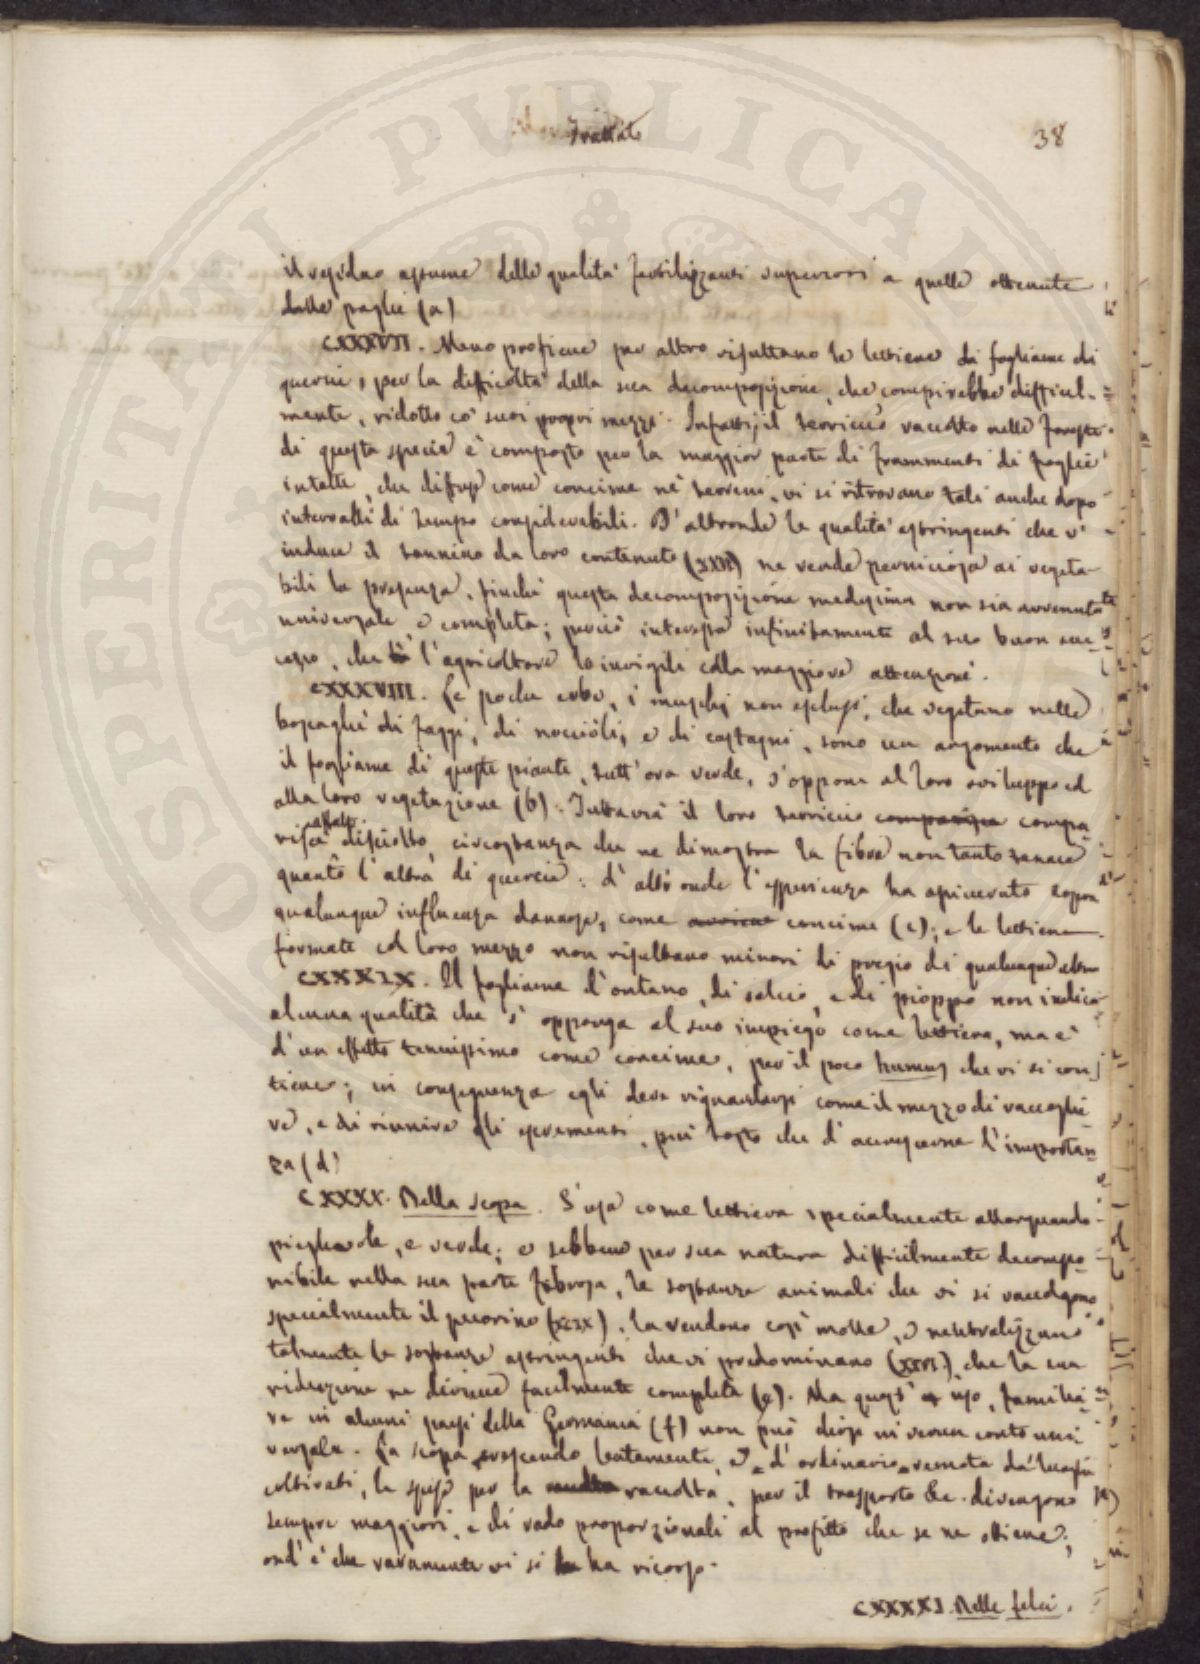 Trattato
38
il residuo assume delle qualità fertilizzanti superiori a quelle ottenute
dalle paglie (a)
CXXXVII. Meno proficue per altro risultano le lettiere di fogliame di
quercie, per la difficoltà della sua decomposizione, che compirebbe difficil-
mente, ridotto co' suoi propri mezzi. Infatti, il terriccio raccolto nelle foreste
di questa specie è composto per la maggior parte di frammenti di foglie
intatte, che diffuse come concime ne' terreni, vi si ritrovano tali anche dopo
intervalli di tempo considerabili. D'altronde le qualità astringenti che v'
induce il tannino da loro contenuto (XXVI) ne rende perniciosa ai vegeta-
bili la presenza, finchè questa decomposizione medesima non sia avvenuta
universale e completa; perciò interessa infinitamente al suo buon suc-
cesso, che l'agricoltore lo invigili colla maggiore attenzione.
CXXXVIII. Le poche erbe, i muschi non esclusi, che vegetano nelle
boscaglie di faggi, di noccioli, e di castagni, sono un argomento che
il fogliame di queste piante, tutt'ora verde, s'oppone al loro sviluppo ed
alla loro vegetazione (b). Tuttavia il loro terriccio comparisce compa-
risce disciolto, circostanza che ne dimostra la fibra non tanto tenace
quanto l'altra di quercia: d'altronde l'esperienza ha
qualunque influenza dannosa, come concime (c); e le lettiere
formate col loro mezzo non risultano minori di pregio di qualunque altra
CXXXIX. Il fogliame d'ontano, di salcio, e di pioppo non indica
alcuna qualità che s'opponga al suo impiego come lettiera, ma è
d'un effetto tenuissimo come concime, per il poco humus che vi si con-
tiene; in conseguenza egli deve riguardarsi come il mezzo di raccoglie-
re, e di riunire gli escrementi, più tosto che d'accrescerne l'importan-
za (d)
CXXXX. Della scopa. S'usa come lettiera specialmente allorquando
pieghevole, e verde; e sebbene per sua natura difficilmente decompo-
nibile nella sua parte fibrosa, le sostanze animali che vi si raccolgono
specialmente il pecorino (XCIX), la rendono così molle, e neutralizzano
talmente le sostanze astringenti che vi predominano (XXVI), che la sua
riduzione ne diviene facilmente completa (e). Ma quest' uso, familia-
re in alcuni paesi della Germania (f) non può dirsi in verun conto uni-
versale. La scopa crescendo lentamente, e d'ordinario remota da' luoghi
coltivati, le spese per la raccolta, per il trasporto &c. divengono
sempre maggiori, e di rado proporzionali al profitto che se ne ottiene;
ond'è che raramente vi si ha ricorso.
CXXXXI. Delle felci.